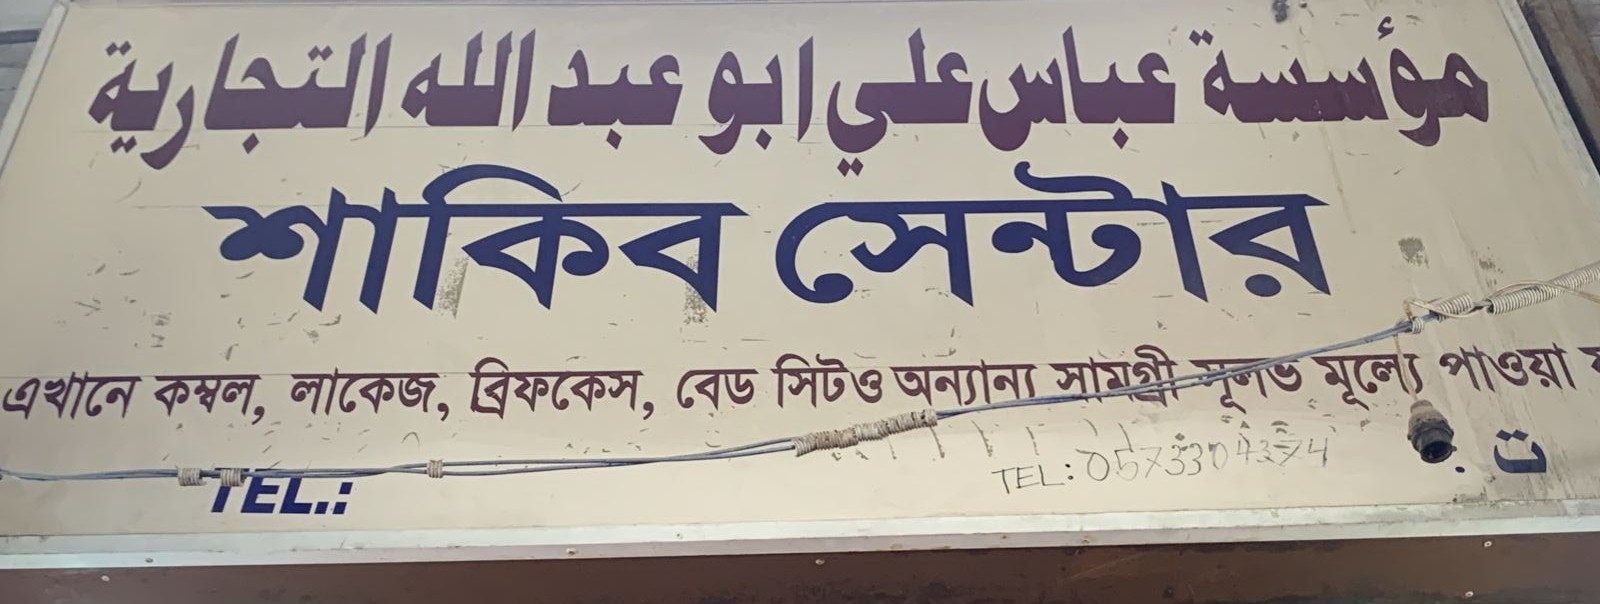 مؤسسة عباس علي ابو عبد الله التجارية
শাকিব সেন্টার
এখানে কম্বল, লাকেজ, ব্রিফকেস, বেড সিট ও অন্যান্য সামগ্রী সূলভ মূল্যে পাওয়া
TEL.: TEL: 0573304374 ت